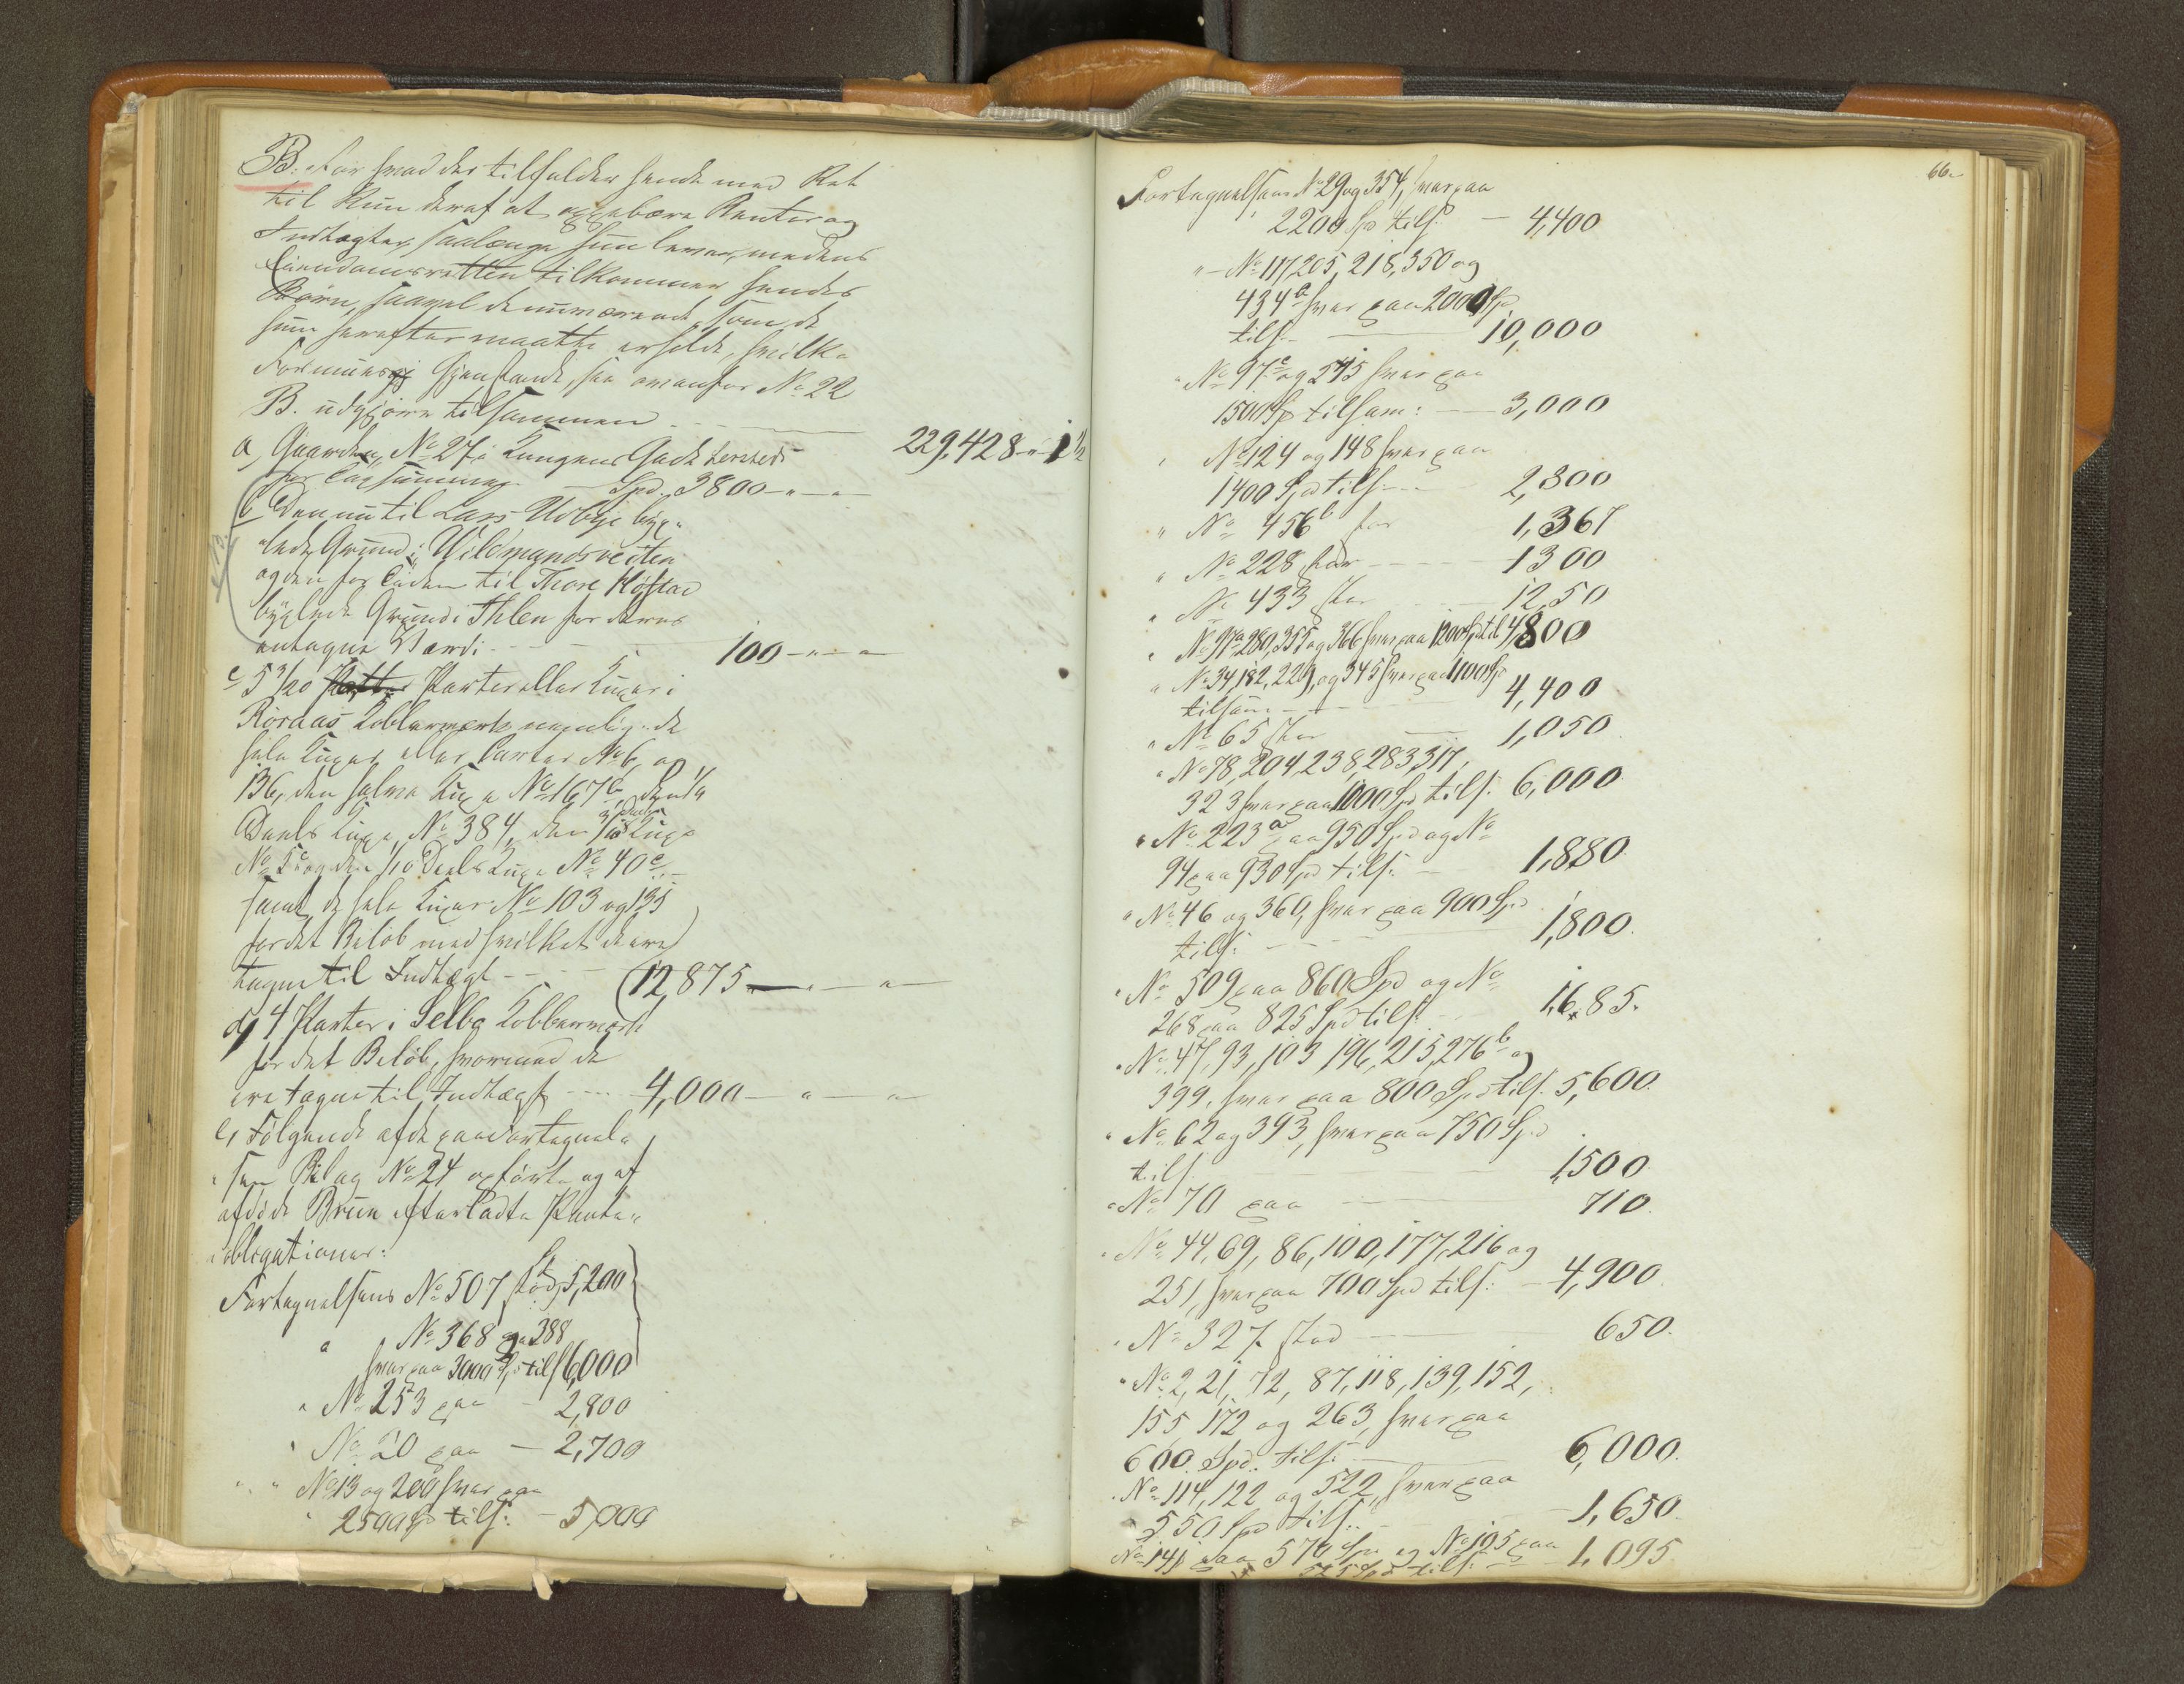 B. For hvad der tilfalder hende med Ret
til kun deraf at oppebære Renter og
Indtægter, saalænge hun lever, medens
Eiendomsretten tilkommer hendes
Børn, saavel de nuværende, som de
hun herefter maatte erholde, hvilke
Formues Gjenstande, see ovenfor No 22
B. udgjøre tilsammen 229,428 - " - 1 1/2
a, Gaarden No 27 i Kongens Gade
for Taxsummen Spd. 3800 - " - "
b Den nu til Lars Udbye byg-
lede Grund i Vildmandsveiten
og den for Tiden til Thore Høstad
byglede Grund i Ihlen for deres
antagne Værdi 100 - " - "
c 5 3/20 Parter eller Kuxer i
Røraas Kobberværk nemlig: de
hele Kuxer eller Parter No 6, og
136, den halve Kuxe No 167 b, den 1/4
Deels Kuxe No 384, den Kuxe
No 5 c og den 1/10 Deels Kuxe No 40 c
samt de hele Kuxer No 103 og 135
for det Beløb med hvilket de ere
tagne til Indtægt 12,875 - " - "
d, 4 Parter i Selbo Kobberværk
for det Beløb, hvormed de
ere tagne til Indtægt 4,000 - " - "
e, Følgende af de paa Fortegnel-
sen Bilag No 24 opførte og af
afdøde Bruun efterladte Pante-
obligationer:
Fortegnelsens No 507 stor 5,200
" No 368 og 288
hver paa 3000 Sp tils 6,000
" No 253 paa - 2,800
" No 20 paa - 2,700
" " No 13 og 200 hver paa
" 2500 Sp tils: - 5,000
66.
Fortegnelsens No 29 og 354, hver paa
2200 Sp tils. - 4,400
" - No 117, 205, 218, 350 og
434 a hver paa 2000 Sp
tils. 10,000
" No 97 c og 245 hver paa
1500 Sp tilsam: - 3,000
" No 124 og 148 hver paa
1400 Spd tils: 2,800
" No 456 b for 1,367
" No 228 stor 1300
" No 433 stor 1250
" No 97 a 280, 355 og 366 hver paa 1200 Sp til 4,800
" No 34, 182, 229, og 345 hver paa 1100 Sp
tilsam: 4,400
" No 65 stor 1,050
" No 78, 204, 238, 283, 317,
323 hver paa 1000 Sp tils: 6,000
" No 223 a paa 950 Spd og No
94 paa 930 Spd tils: 1,880
" No 46 og 360, hver paa 900 Spd
tils: 1,800.
" No 509 paa 860 Spd og No
268 paa 825 Spd tils: 1,685.
" No 47, 93, 103, 196, 215, 276 b og
399, hver paa 800 Spd tils. 5,600.
" No 62 og 393, hver paa 750 Spd
tils 1,500
" No 70 paa 710.
" No 44, 69, 86, 100, 177, 216 og
251, hver paa 700 Spd tils: - 4,900
" No 327 stor 650.
" No 2, 21, 72, 87, 118, 139, 152,
155, 172 og 263, hver paa
600 Spd. tils: 6,000.
" No 114, 122 og 522, hver paa
" 550 Spd tils. - 1,650.
No 141 paa 570 Spd og No 195 paa
525 Spd tils: - 1,095